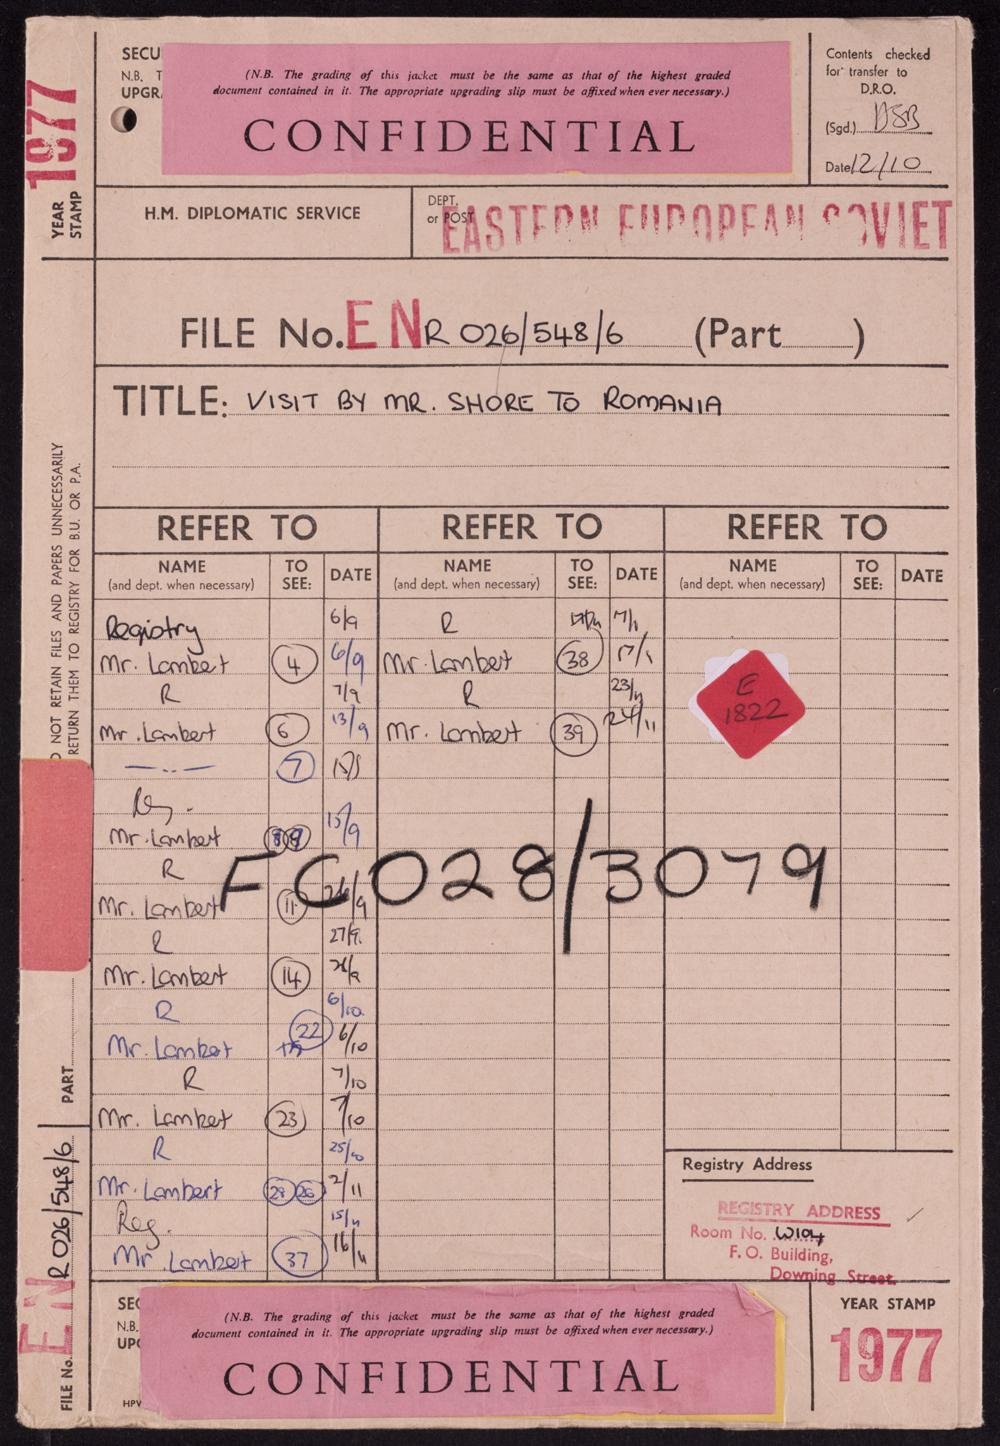 1977
YEAR STAMP
SECU
N.B. T
UPGRA
(N.B. The grading of this jacket must be the same as that of the highest graded
document contained in it. The appropriate upgrading slip must be affixed when ever necessary.)
CONFIDENTIAL
Contents checked
for transfer to
D.R.O.
(Sgd.) DSB
Date 12/10
H.M. DIPLOMATIC SERVICE
DEPT.
or POST
EASTERN EUROPEAN SOVIET
FILE No. ENR 026/548/6 (Part )
TITLE: VISIT BY MR. SHORE TO ROMANIA
NOT RETAIN FILES AND PAPERS UNNECESSARILY
RETURN THEM TO REGISTRY FOR B.U. OR P.A.
REFER TO
NAME TO SEE: DATE
(and dept. when necessary)
Registry 6/9
Mr. Lambert 4 6/9
R 7/9
Mr. Lambert 6 13/9
—..— 7
Reg.
Mr. Lambert 15/9
R
Mr. Lambert 11 26/9
R 27/9
Mr. Lambert 14
R 6/10
Mr. Lambert 22 6/10
R 7/10
Mr. Lambert 23 7/10
R
Mr. Lambert 26 2/11
Reg. 15/11
Mr Lambert 37 16/11
REFER TO
NAME TO SEE: DATE
(and dept. when necessary)
R
Mr. Lambert 38
R 23/11
Mr. Lambert 39 24/11
REFER TO
NAME TO SEE: DATE
(and dept. when necessary)
E
1822
FCO28/3079
Registry Address
REGISTRY ADDRESS
Room No. W104
F.O. Building,
Downing Street.
PART
FILE No. ENR 026/548/6
SEC
N.B.
UPG
HPV
(N.B. The grading of this jacket must be the same as that of the highest graded
document contained in it. The appropriate upgrading slip must be affixed when ever necessary.)
CONFIDENTIAL
YEAR STAMP
1977